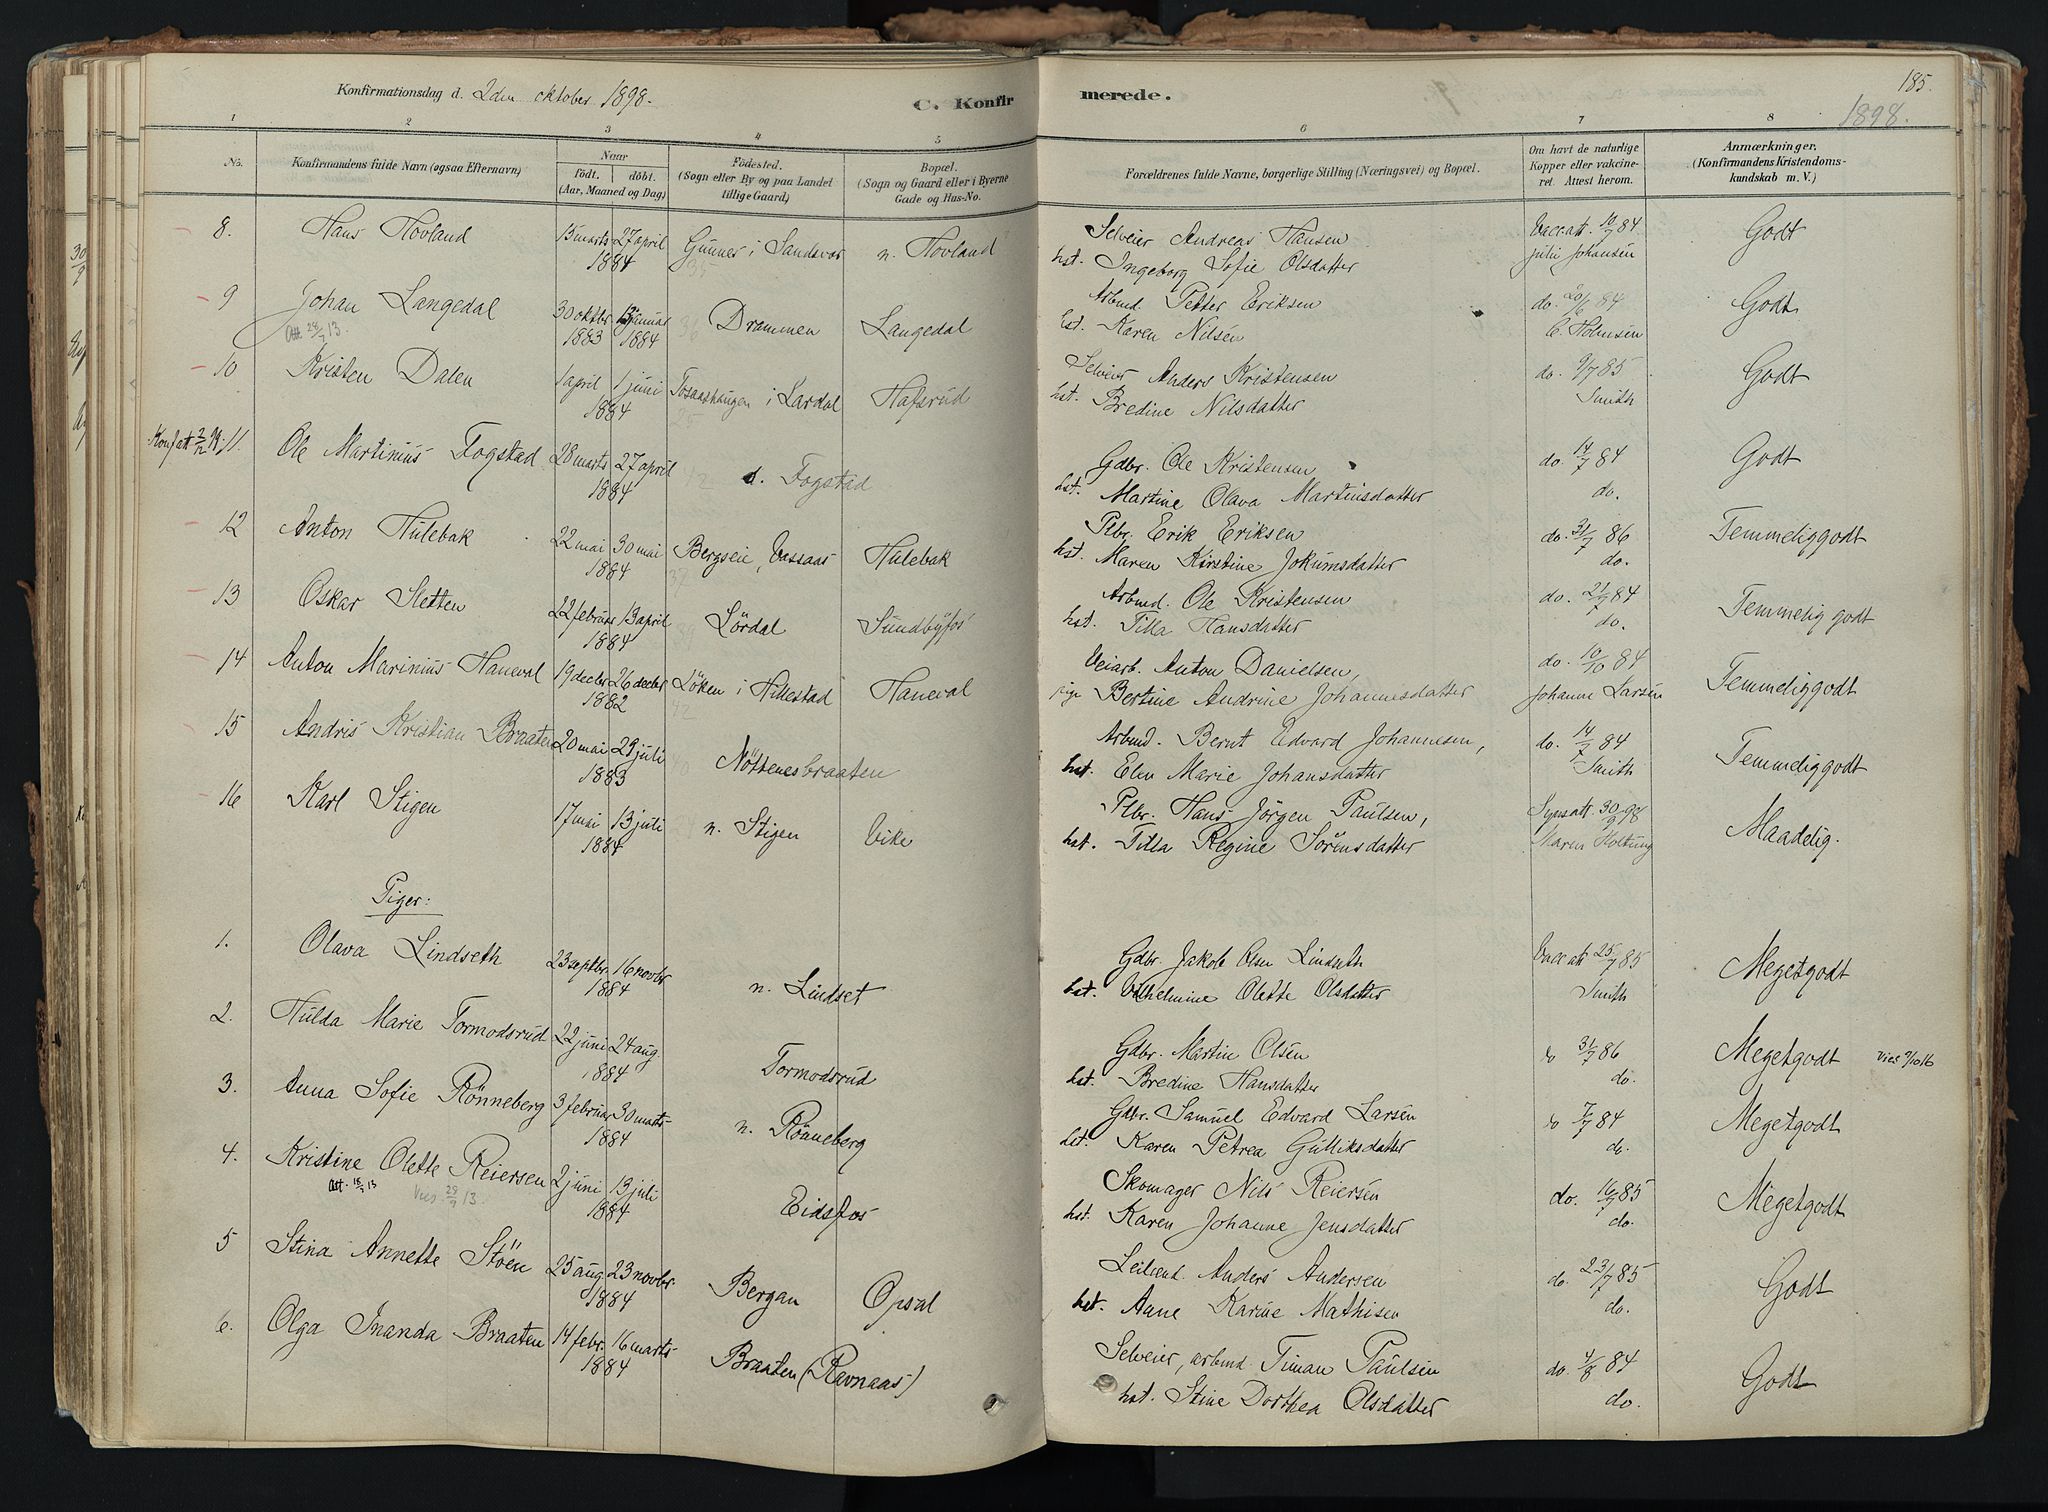 Konfirmationsdag d. 2den oktober 1898.
C. Konfirmerede.
185.
1898.
1 2 3 4 5 6 7 8
No.
Konfirmandens fulde Navn (ogsaa Efternavn)
Naar
født. döbt.
(Aar, Maaned og Dag)
Födested.
(Sogn eller By og paa Landet
tillige Gaard)
Bopæl.
(Sogn og Gaard eller i Byerne
Gade og Hus-No.
Forældrenes fulde Navne, borgerlige Stilling (Næringsvei) og Bopæl.
Om havt de naturlige
Kopper eller vakcine-
ret. Attest herom.
Anmærkninger.
(Konfirmandens Kristendoms-
kundskab m. V.)
8. Hans Hovland 15 marts 27 april 1884 Gunnes i Sandsvær n. Hovland Selveier Andreas Hansen Vaccatt. 10/7 84 Godt
hst. Ingeborg Sofie Olsdatter julie Johansen
9 Johan Langedal 30 oktbr. 1883 januar 1884 Drammen Langedal Arbmd. Petter Eriksen do. 20/6 84 Godt
Att. 28/7 13. hst. Karen Nilsen C. Holmsen
10 Kristen Dalen 1 april 1 juni 1884 Tosaashaugen i Lardal Hafsrud Selveier Anders Kristensen do. 9/7 85 Godt
hst. Bredine Nilsdatter Smith
Konf att 11. Ole Martinius Fogstad 28 marts 27 april 1884 d. Fogstad Gdbr. Ole Kristensen do. 14/7 84 Godt
hst. Martine Olava Martinsdatter do.
12 Anton Hulebak 22 mai 30 mai 1884 Bergseie, Vassaas Hulebak Plbr. Erik Eriksen do. 31/7 86 Temmeliggodt
hst. Maren Kirstine Jokumsdatter do.
13 Oskar Sletten 22 februar 13 april 1884 Lördal Sundbyfos Arbmd. Ole Kristensen do. 21/7 84 Temmelig godt
hst. Tilla Hansdatter do.
14 Anton Marinius Haneval 19 decbr 26 decbr 1882 Löken i Hillestad Haneval Veiarb. Anton Danielsen, do. 10/10 84 Temmeliggodt
pige Bertine Andrine Johannesdatter Johanne Larsen
15 Andris Kristian Braaten 20 mai 29 juli 1883 Nöttenesbraaten Arbmd. Bernt Edvard Johannesen, do. 14/7 84 Temmeliggodt
hst. Elen Marie Johansdatter Smith
16 Karl Stigen 17 mai 13 juli 1884 n. Stigen Vike Plbr. Hans Jörgen Paulsen, Synsatt. 30/9 98 Maadelig.
hst. Tilla Regine Sörensdatter Maren Holtung
Piger:
1. Olava Lindseth 23 septbr. 16 novbr 1884 n. Lindset Gdbr. Jakob Olsen Lindseth Vacc att 25/7 85 Megetgodt
hst. Vilhelmine Olette Olsdatter Smith
2. Hulda Marie Tormodsrud 22 juni 24 aug. 1884 Tormodsrud Gdbr. Martin Olsen do 31/7 86 Megetgodt
hst. Bredine Hansdatter do.
3. Anna Sofie Rönneberg 3 februar 30 marts 1884 n. Rönneberg Gdbr. Samuel Edvard Larsen do 7/7 84 Megetgodt
hst. Karen Petrea Gulliksdatter do.
4. Kristine Olette Reiersen 2 juni 13 juli 1884 Eidsfos Skomager Nils Reiersen do. 16/7 85 Megetgodt
Vies 28/9 13. hst. Karen Johanne Jensdatter do.
5 Stina Annette Stöen 25 aug 23 novbr. 1884 Bergan Opsal Leilend. Anders Andersen do. 23/7 85 Godt
hst. Anne Karine Mathisen do.
6. Olga Inanda Braaten 14 febr. 16 marts 1884 Braaten (Ravnaas) Selveier, arbmd. Timan Paulsen do. 4/8 84 Godt
hst. Stine Dorthea Olsdatter do.